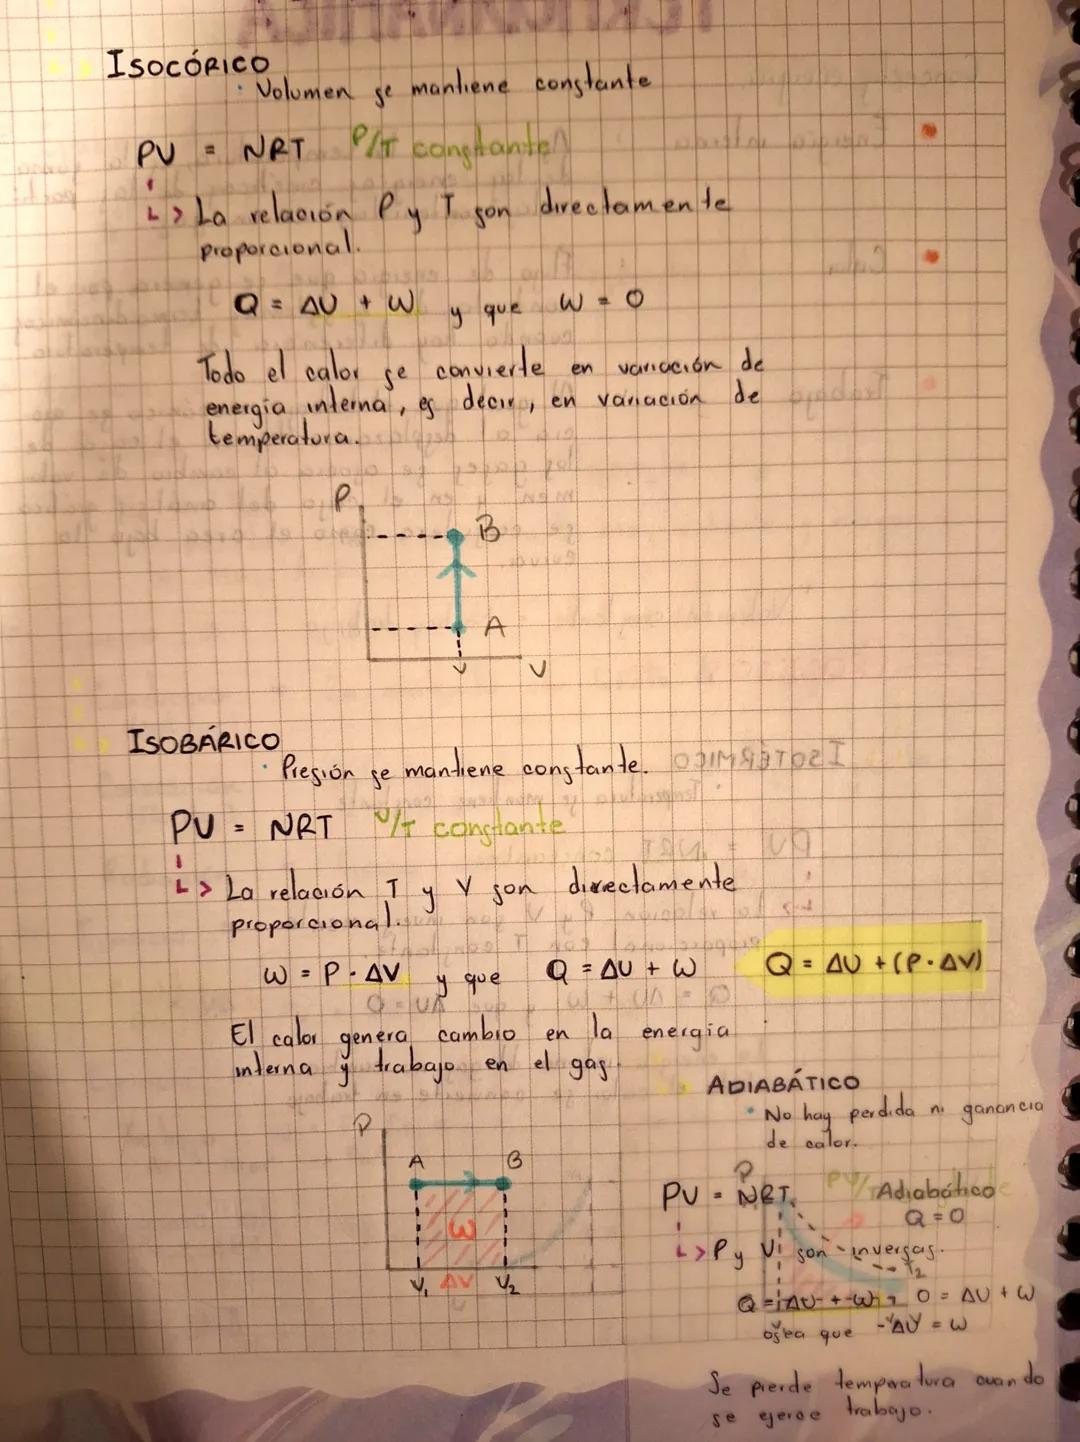 TERMODINÁMICA
ISOCÓRICO
• Volumen se mantiene constante
PV = NRT P/T constante
↳ La relación P y T son directamente
proporcional.
Q = ΔU + W y que W = 0
Todo el calor se convierte en variación de
energía interna, es decir, en variación de
temperatura.
P
B
A
V V
ISOBÁRICO
• Presión se mantiene constante.
PV = NRT V/T constante
↳ La relación T y V son directamente
proporcional.
W = P · ΔV y que Q = ΔU + W Q = ΔU + (P · ΔV)
El calor genera cambio en la energía
interna y trabajo en el gas.
P
A B
W
V₁ ΔV V₂
ADIABÁTICO
• No hay perdida ni ganancia
de calor.
PV = NRT Adiabático
Q = 0
↳ P y V son inversas.
Q = ΔU + W 0 = ΔU + W
osea que -ΔU = W
Se pierde temperatura cuando
se ejerce trabajo.